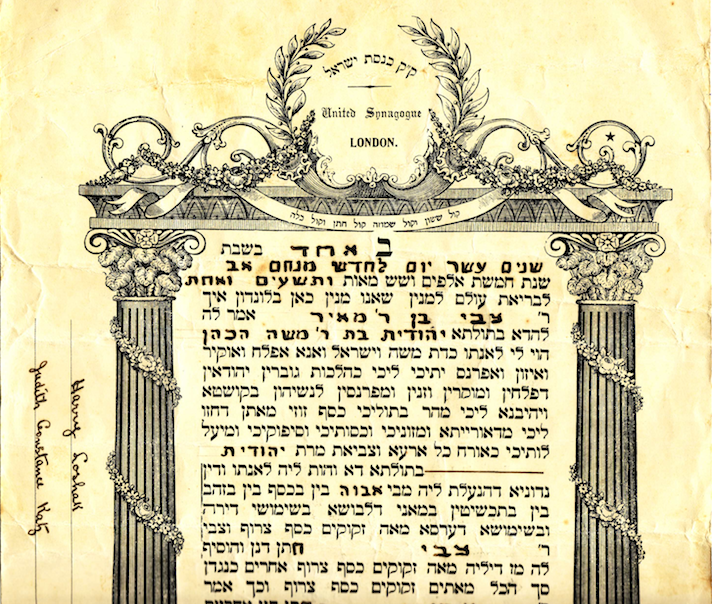 ק״ק כנסת ישראל
United Synagogue
LONDON.
קול ששון וקול שמחה קול חתן וקול כלה
באחד בשבת
שנים עשר יום לחדש מנחם אב
שנת חמשת אלפים ושש מאות ותשעים ואחת
לבריאת עולם למנין שאנו מנין כאן בלונדון איך
ר׳ צבי בן ר׳ מאיר אמר לה
להדא בתולתא יהודית בת ר׳ משה הכהן
הוי לי לאנתו כדת משה וישראל ואנא אפלח ואוקיר
ואיזון ואפרנס יתיכי ליכי כהלכות גוברין יהודאין
דפלחין ומוקרין וזנין ומפרנסין לנשיהון בקושטא
ויהיבנא ליכי מהר בתוליכי כסף זוזי מאתן דחזו
ליכי מדאורייתא ומזוניכי וכסותיכי וסיפוקיכי ומיעל
לותיכי כאורח כל ארעא וצביאת מרת יהודית
בתולתא דא והות ליה לאנתו ודין
נדוניא דהנעלת ליה מבי אבוה בין בכסף בין בזהב
בין בתכשיטין במאני דלבושא בשימושי דירה
ובשימושא דערסא מאה זקוקים כסף צרוף וצבי
ר׳ צבי חתן דנן והוסיף
לה מן דיליה מאה זקוקים כסף צרוף אחרים כנגדן
סך הכל מאתים זקוקים כסף צרוף וכך אמר
Harry Loshak
Judith Constance Katz